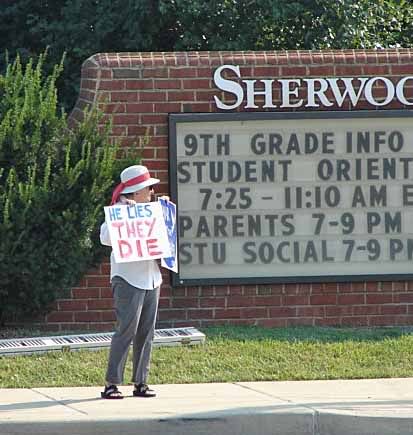 SHERWOO
9TH GRADE INFO
STUDENT ORIENT
7:25 - 11:10 AM E
PARENTS 7-9 PM
STU SOCIAL 7-9 P
HE LIES
THEY
DIE